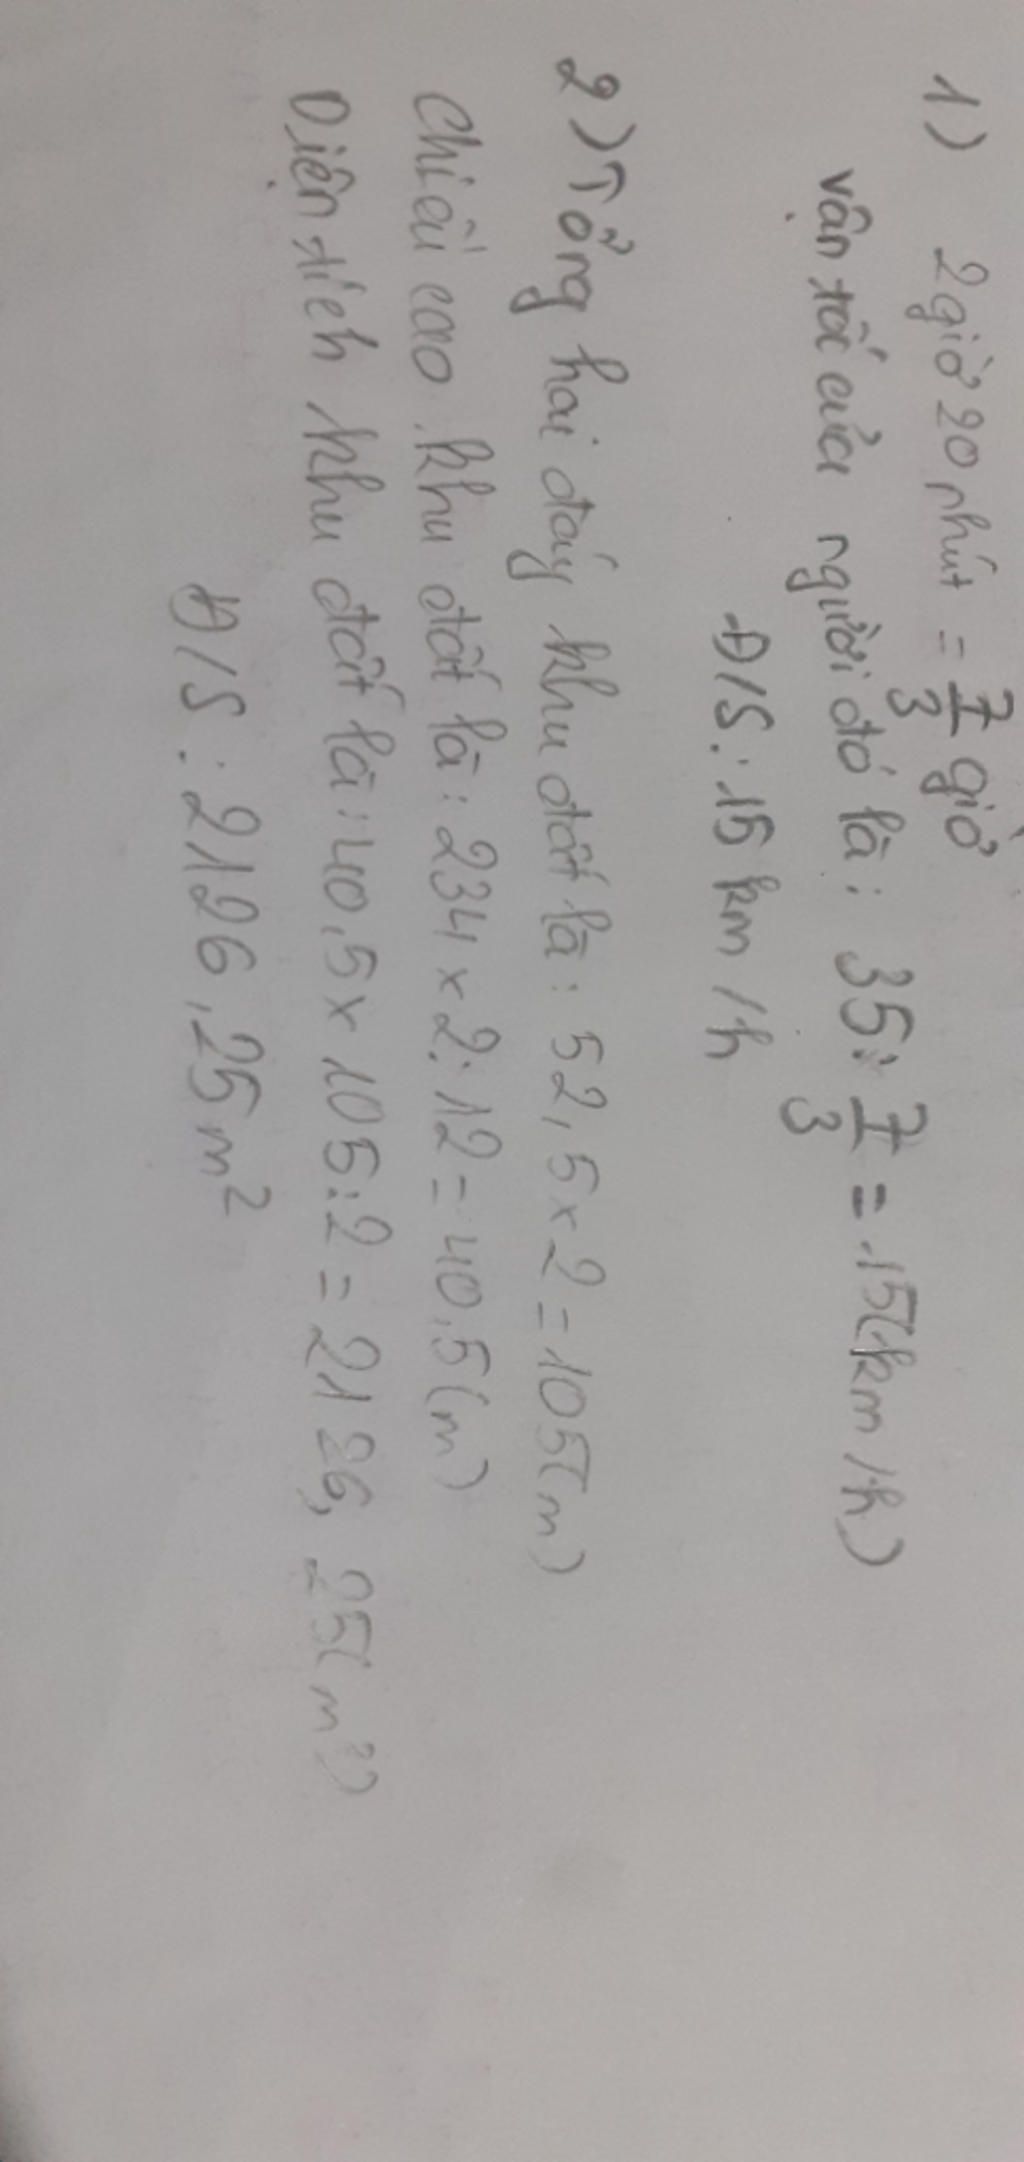 1) 2 giờ 20 phút = 7/3 giờ
vận tốc của người đó là: 35 : 7/3 = 15(km/h)
Đ/S: 15 km/h
2) Tổng hai đáy khu đất là: 52,5 x 2 = 105(m)
Chiều cao khu đất là: 234 x 2 : 12 = 40,5(m)
Diện tích khu đất là: 40,5 x 105 : 2 = 2126,25(m²)
Đ/S: 2126,25 m²